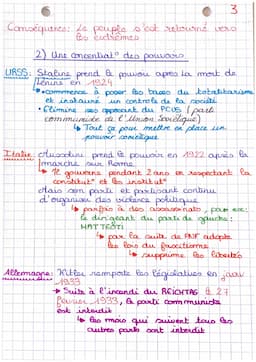 3
Conséquences: Le peuple s'est retourné vers
les extrêmes
2) Une concentrat° des pouvoirs
URSS: Staline prend le pouvoir après la mort de
Lénine en 1924
commence à poser les bases du totalitarisme
et instaure un contrôle de la société
Elimine ses opposant du PCUS (parti
communiste de l'Union Soviétique)
Tout ça pour mettre en place un
pouvoir soviétique
Italie: Mussolini prend le pouvoir en 1922 après la
marche sur Rome
Il gouverne pendant 2 ans en respectant la
constitut° et les institut°
Mais son parti et partisant continu
d'organiser des violence politique
parfois à des assassinats, pour ex:
le dirigeant du parti de gauche:
MATTEOTI
par la suite de PNF adopte
les lois du fascistismes
supprime les libertés
Allemagne: Hitler remporte les législatives en janv
1933
Suite à l'incendi du REICHTAG le 27
février 1933, le parti communiste
est interdit
les mois qui suivent tous les
autres partis sont interdit